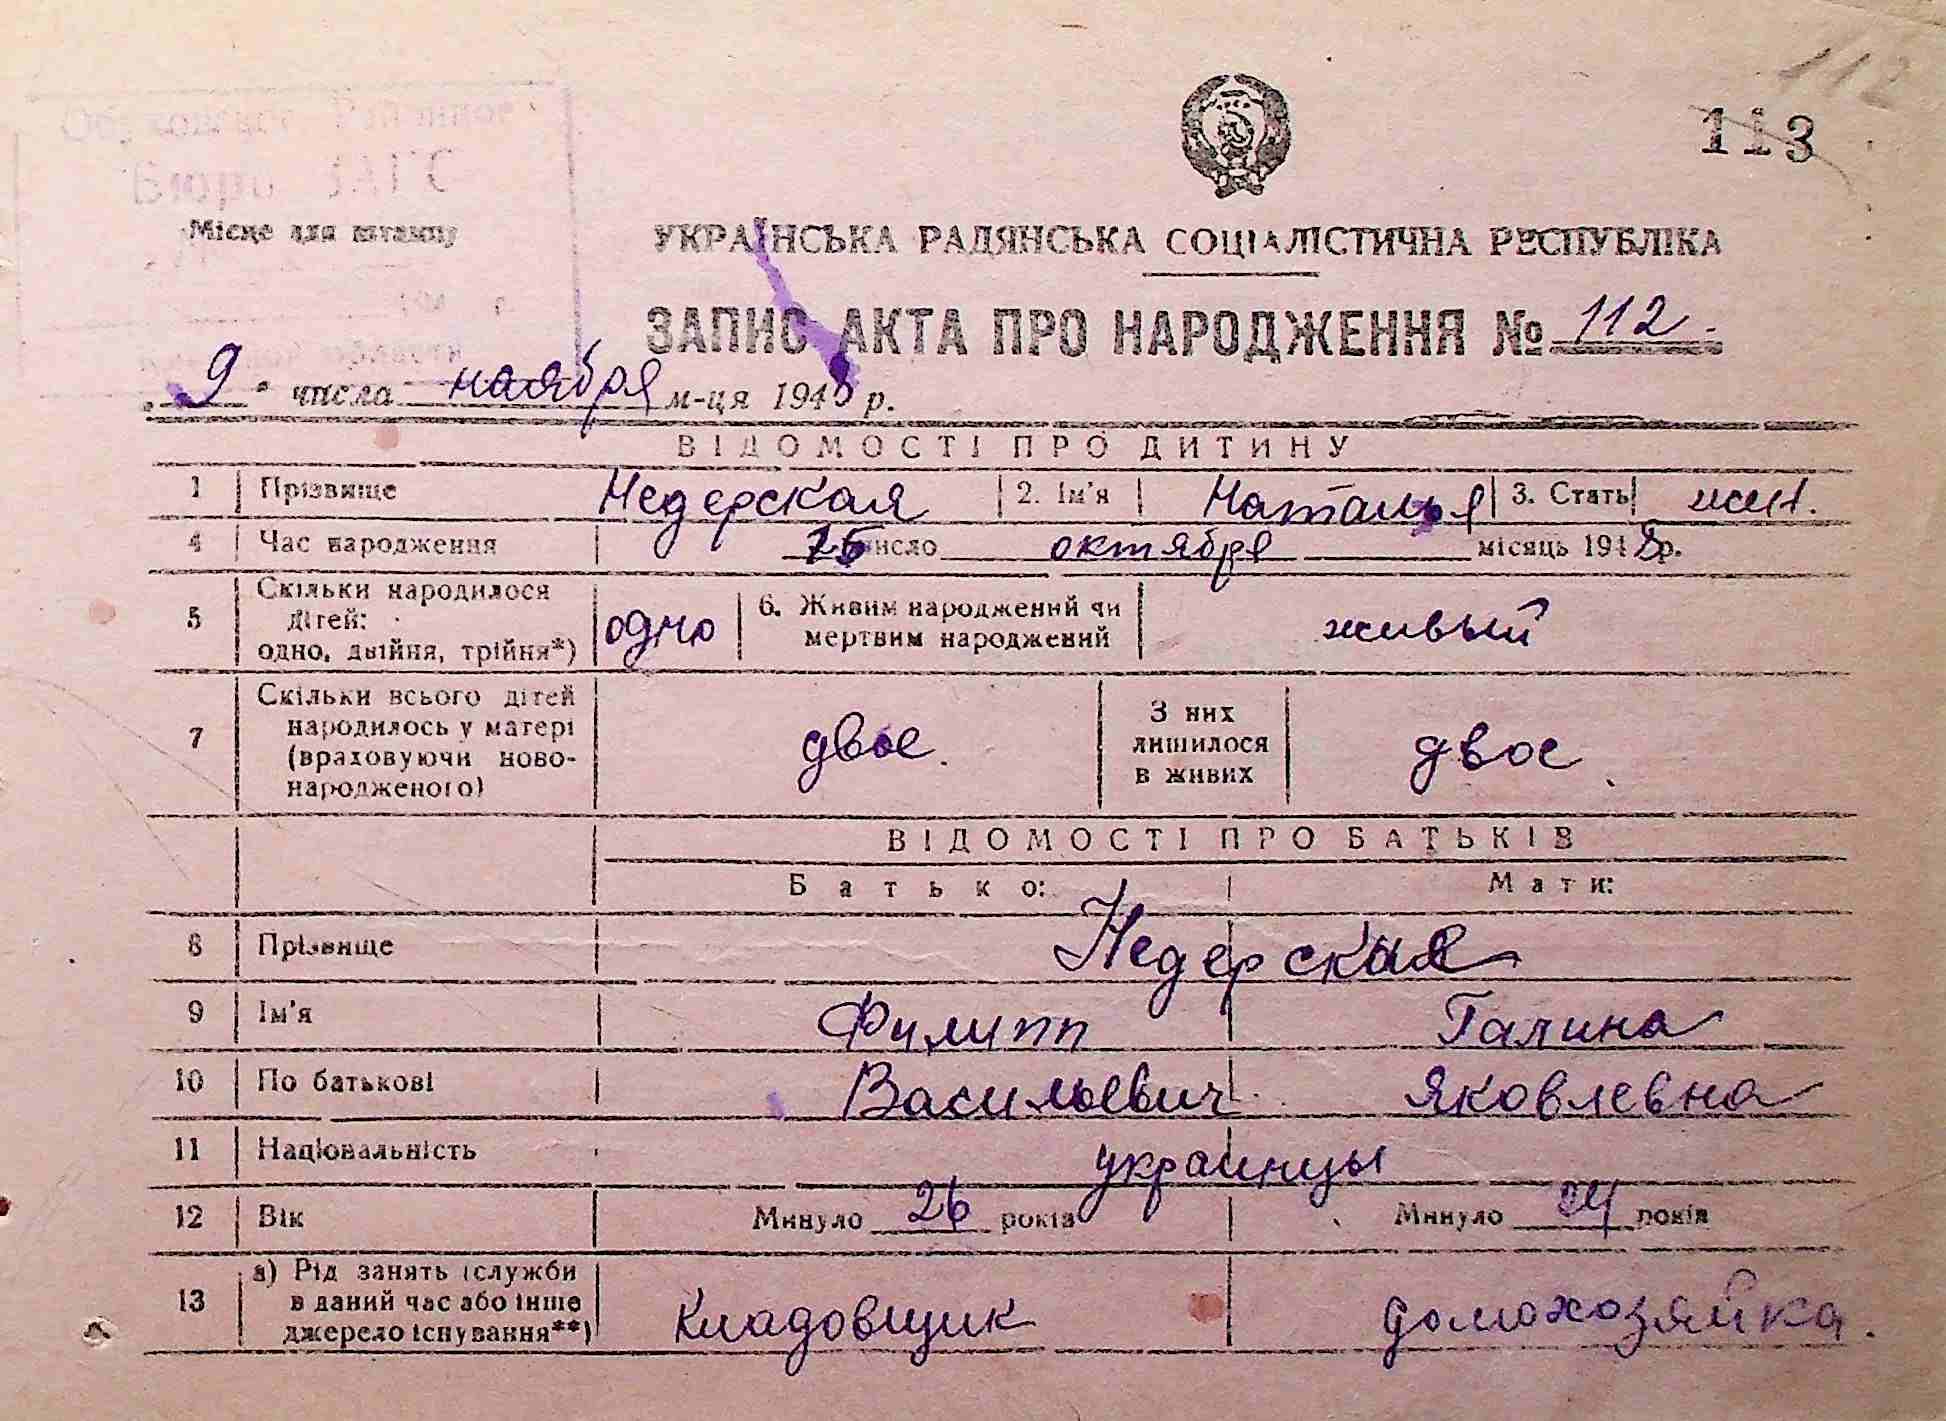 112
113
Бюро ЗАГС
Місце для штампу
УКРАЇНСЬКА РАДЯНСЬКА СОЦІАЛІСТИЧНА РЕСПУБЛІКА
ЗАПИС АКТА ПРО НАРОДЖЕННЯ № 112.
„9" числа ноября м-ця 1948 р.
ВІДОМОСТІ ПРО ДИТИНУ
1 Прізвище Недерская 2. Ім'я Наталья 3. Стать жен.
4 Час народження число октября місяць 1948 р.
5 Скільки народилося
дітей:
одно, двійня, трійня*) одно 6. Живим народжений чи
мертвим народжений живый
7 Скільки всього дітей
народилось у матері
(враховуючи ново-
народженого) двое. З них
лишилося
в живих двое.
ВІДОМОСТІ ПРО БАТЬКІВ
Батько: Мати:
8 Прізвище Недерские
9 Ім'я Филипп Галина
10 По батькові Васильевич Яковлевна
11 Національність украинцы
12 Вік Минуло 26 років Минуло 24 років
13 а) Рід занять (служби
в даний час або інше
джерело існування**) Кладовщик домохозяйка.